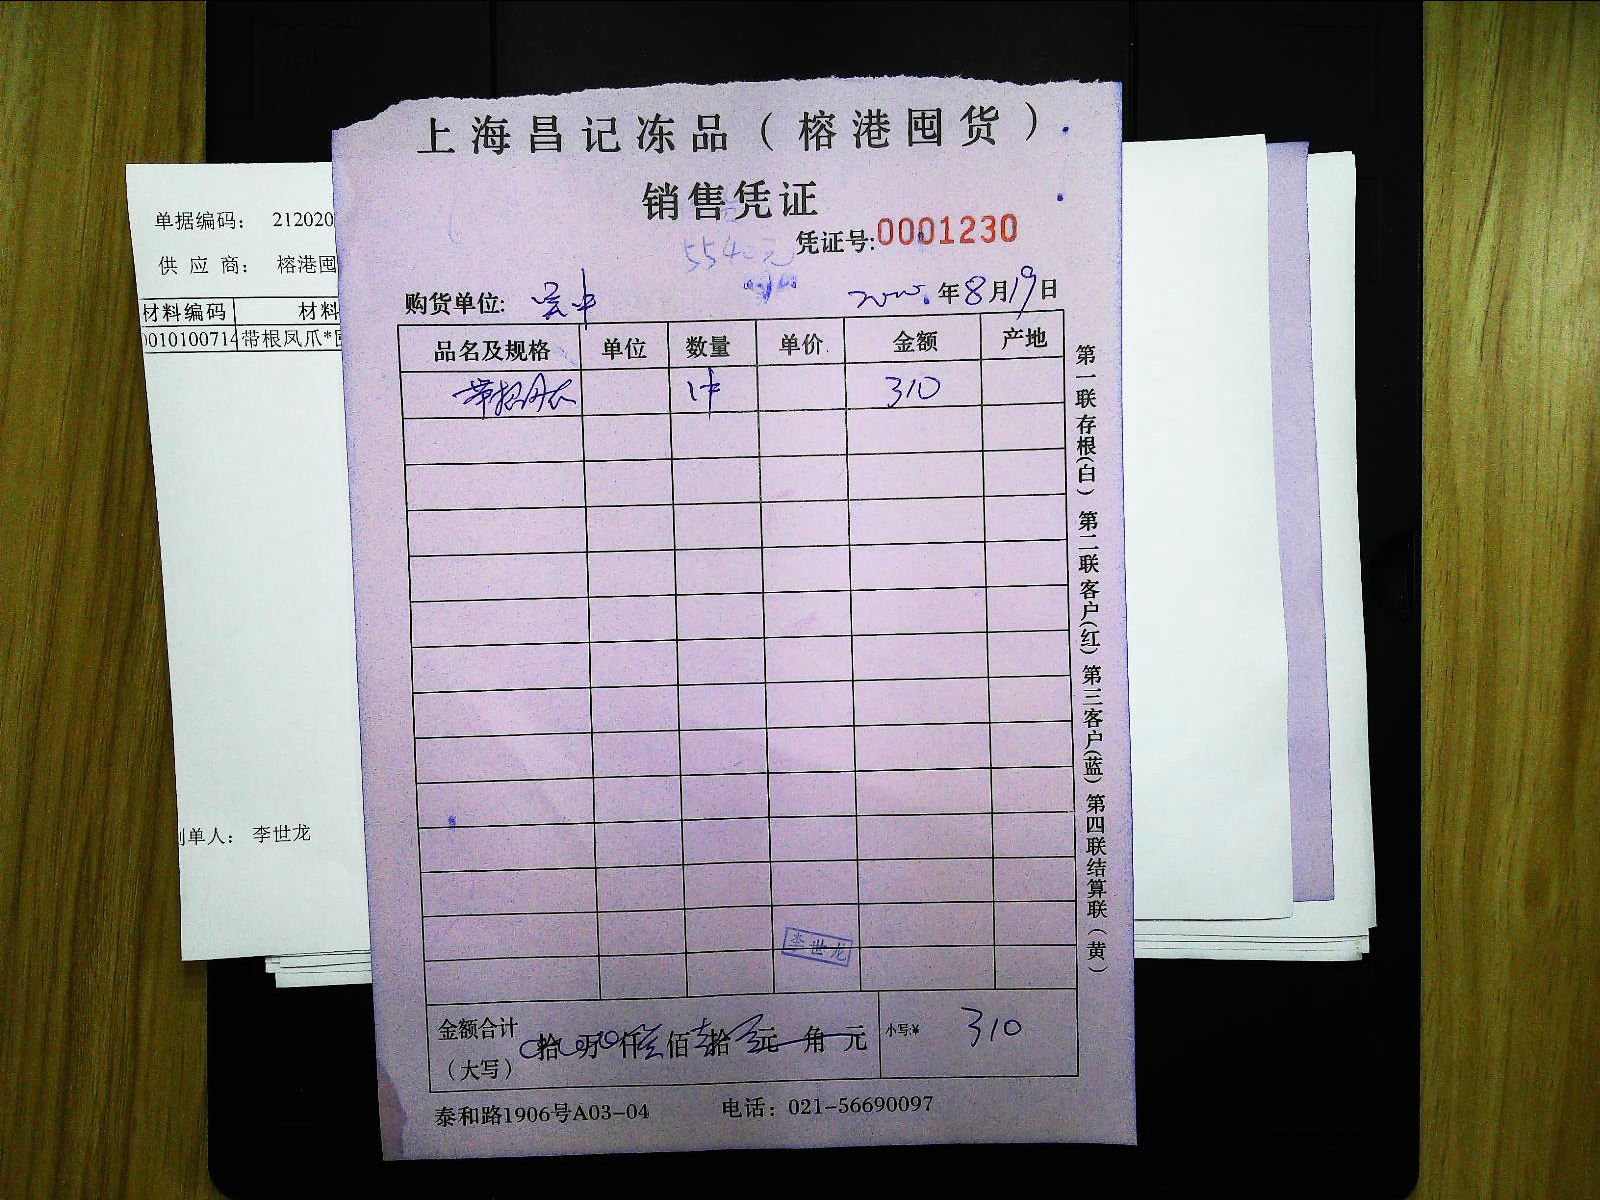 上海昌记冻品（榕港囤货）
销售凭证
凭证号:0001230
5540元
购货单位:
年8月19日
品名及规格 单位 数量 单价 金额 产地
1件 310
金额合计（大写） 拾 万 仟 叁佰 壹拾 零元 角 元 小写:¥ 310
泰和路1906号A03-04 电话：021-56690097
第一联存根(白) 第二联客户(红) 第三客户(蓝) 第四联结算联(黄)
李世龙
单据编码： 212020
供 应 商： 榕港囤
材料编码 材料
0010100714 带根凤爪*
制单人： 李世龙